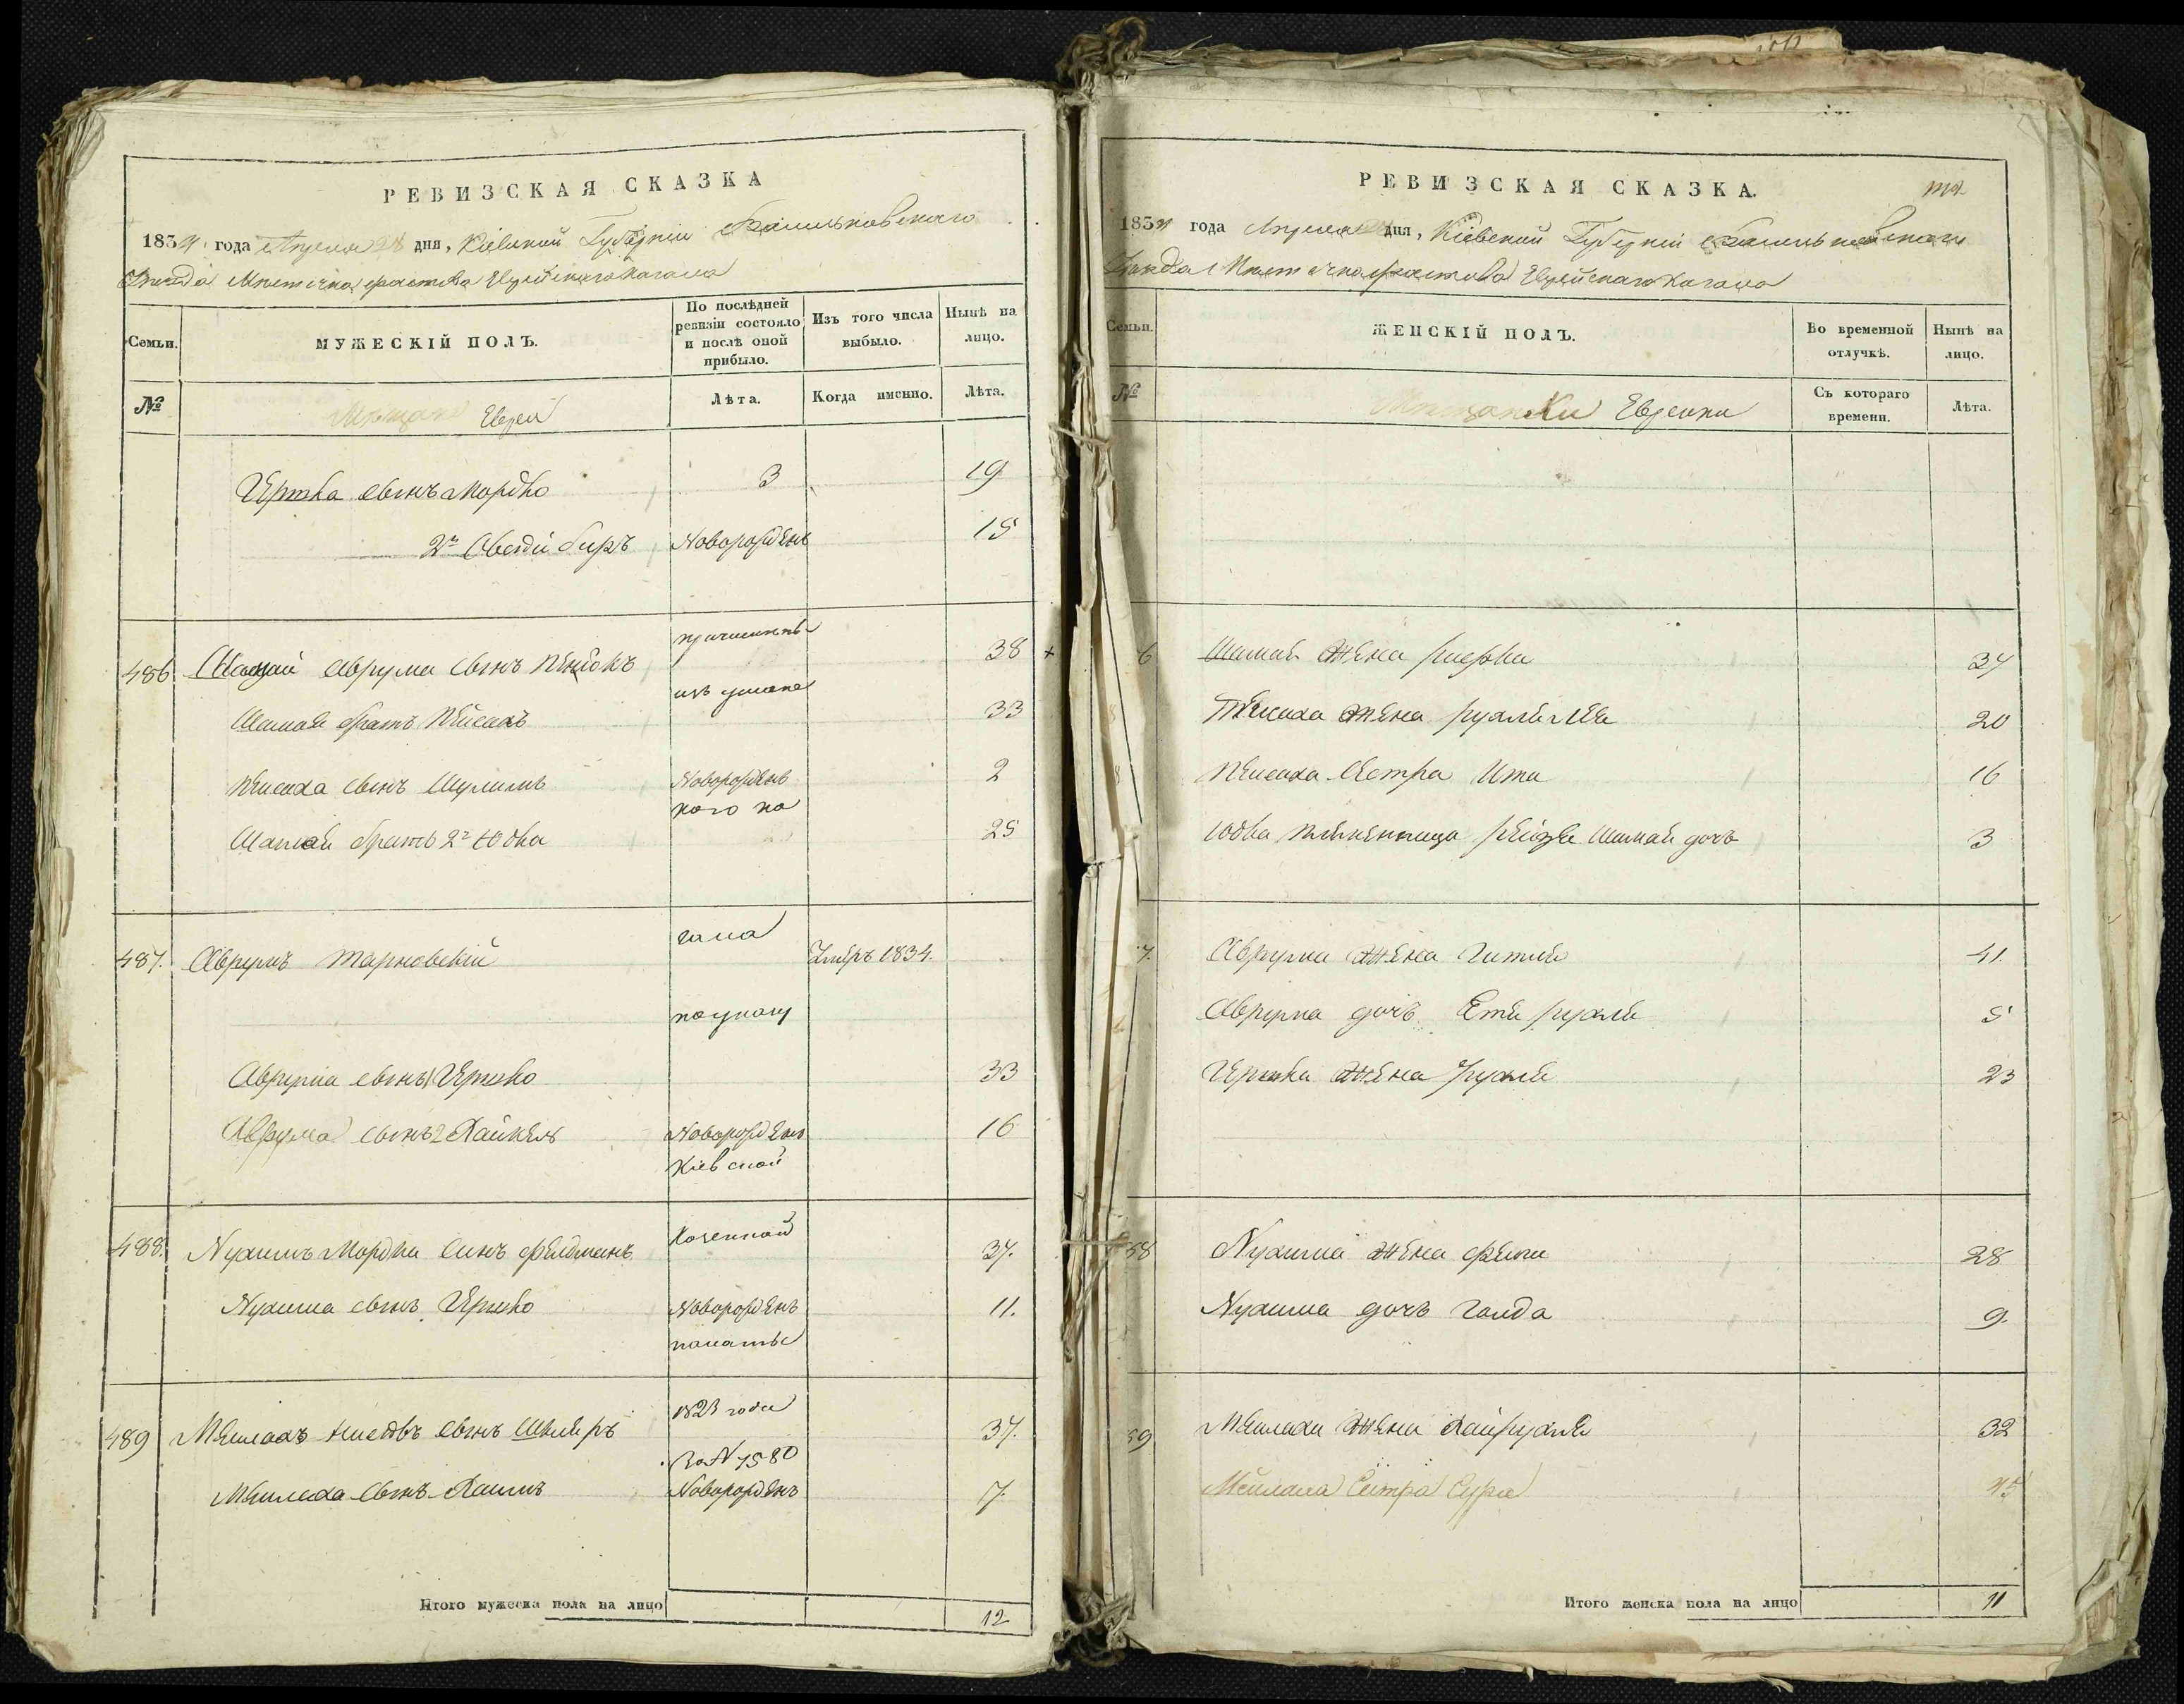 РЕВИЗСКАЯ СКАЗКА
1834 года Апреля дня, Кіевской Губерніи Васильковскаго
Мѣстечка Фастова Еврейскаго Кагала
Семьи.
МУЖЕСКІЙ ПОЛЪ.
По послѣдней ревизіи состояло и послѣ оной прибыло.
Изъ того числа выбыло.
Нынѣ на лицо.
№
Евреи
Лѣта.
Когда именно.
Лѣта.
сынъ Мордко 3 19
2й Новорожденъ 15
486 Аврума сынъ 38
причисленъ
Шамая братъ Пейсахъ 33
Пейсаха сынъ Шулимъ Новорожденъ 2
Шамая братъ 2й Юдка 25
487. Аврумъ Тарновскій 1834.
гала
по указу
Аврума сынъ Гершко 33
Аврума сынъ 2 Хайкель Новорожденъ 16
Кіевской
488. Нухимъ Мордка синъ Фелдманъ 37.
Казенной
Нухима сынъ Гершко Новорожденъ 11.
палаты
489 Мейлахъ сынъ Шкляръ 37.
1823 года
За № 7580
Мейлаха сынъ Хаимъ Новорожденъ 7.
Итого мужеска пола на лицо 12
РЕВИЗСКАЯ СКАЗКА.
1834 года Апреля дня, Кіевской Губерніи Васильковскаго
Мѣстечка Фастова Еврейскаго Кагала
Семьи.
ЖЕНСКІЙ ПОЛЪ.
Во временной отлучкѣ.
Нынѣ на лицо.
№
Мѣщанки Еврейки
Съ котораго времени.
Лѣта.
6 Шамая жена Ривка 37
Пейсаха жена Рухля Лея 20
Пейсаха сестра Ита 16
Юдка племенница Рейзя Шамая дочь 3
7. Аврума жена Гитля 41.
Аврума дочь Етя Рухля 5
Гершка жена Рухля 23
88 Нухима жена Фейга 28
Нухима дочь Голда 9.
89 Мейлаха жена Хайрухля 32
Мейлаха Сестра Сура 15
Итого женска пола на лицо 11